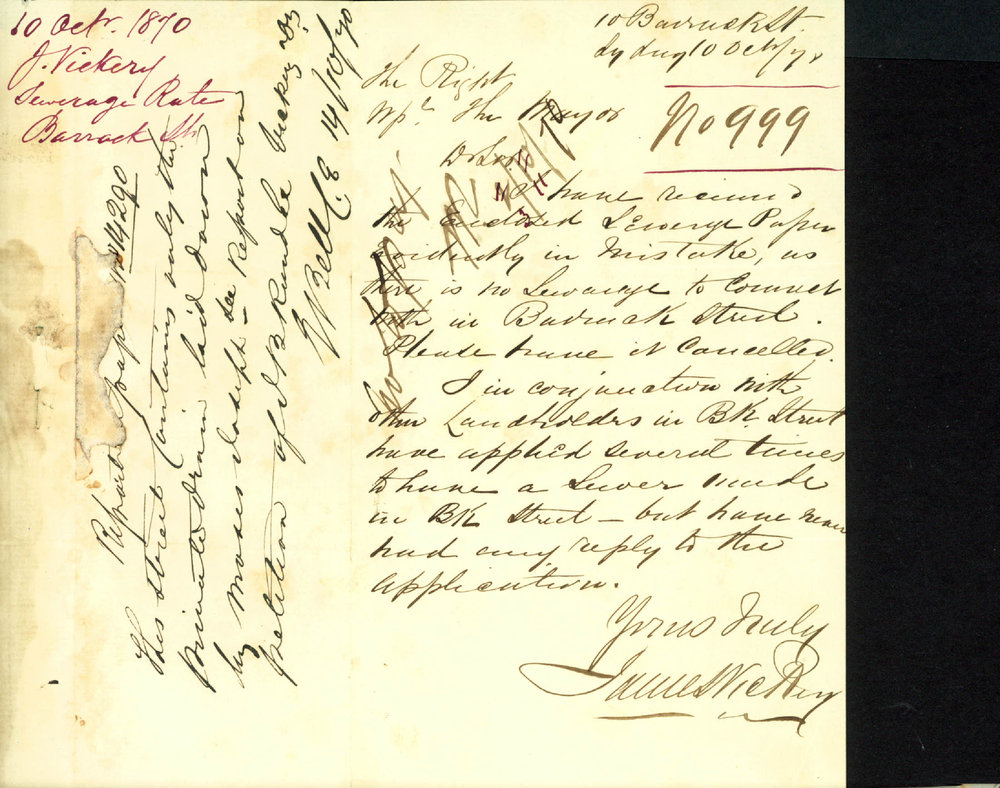 10 Octr. 1870
J. Vickery
Sewerage Rate
Barrack St.
10 Barrack St.
Sydney 10 Oct/70
No 999
The Right
Wpl. The Mayor
Dr Sir
I have received
the Enclosed Sewerage Paper
evidently in mistake, as
there is no Sewarage to Connect
with in Barrack Street.
Please have it Cancelled.
I in conjunction with
other Landholders in BK. Street
have applied several times
to have a Sewer made
in BK Street – but have never
had any reply to the
application.
Yrs Truly
James Vickery
Report
No 14290
This street Contains only the
private drain laid down
by Moses & Joseph – see Report on
petition of J B Rundle Vickery &c
E Bell C.E 14/10/70